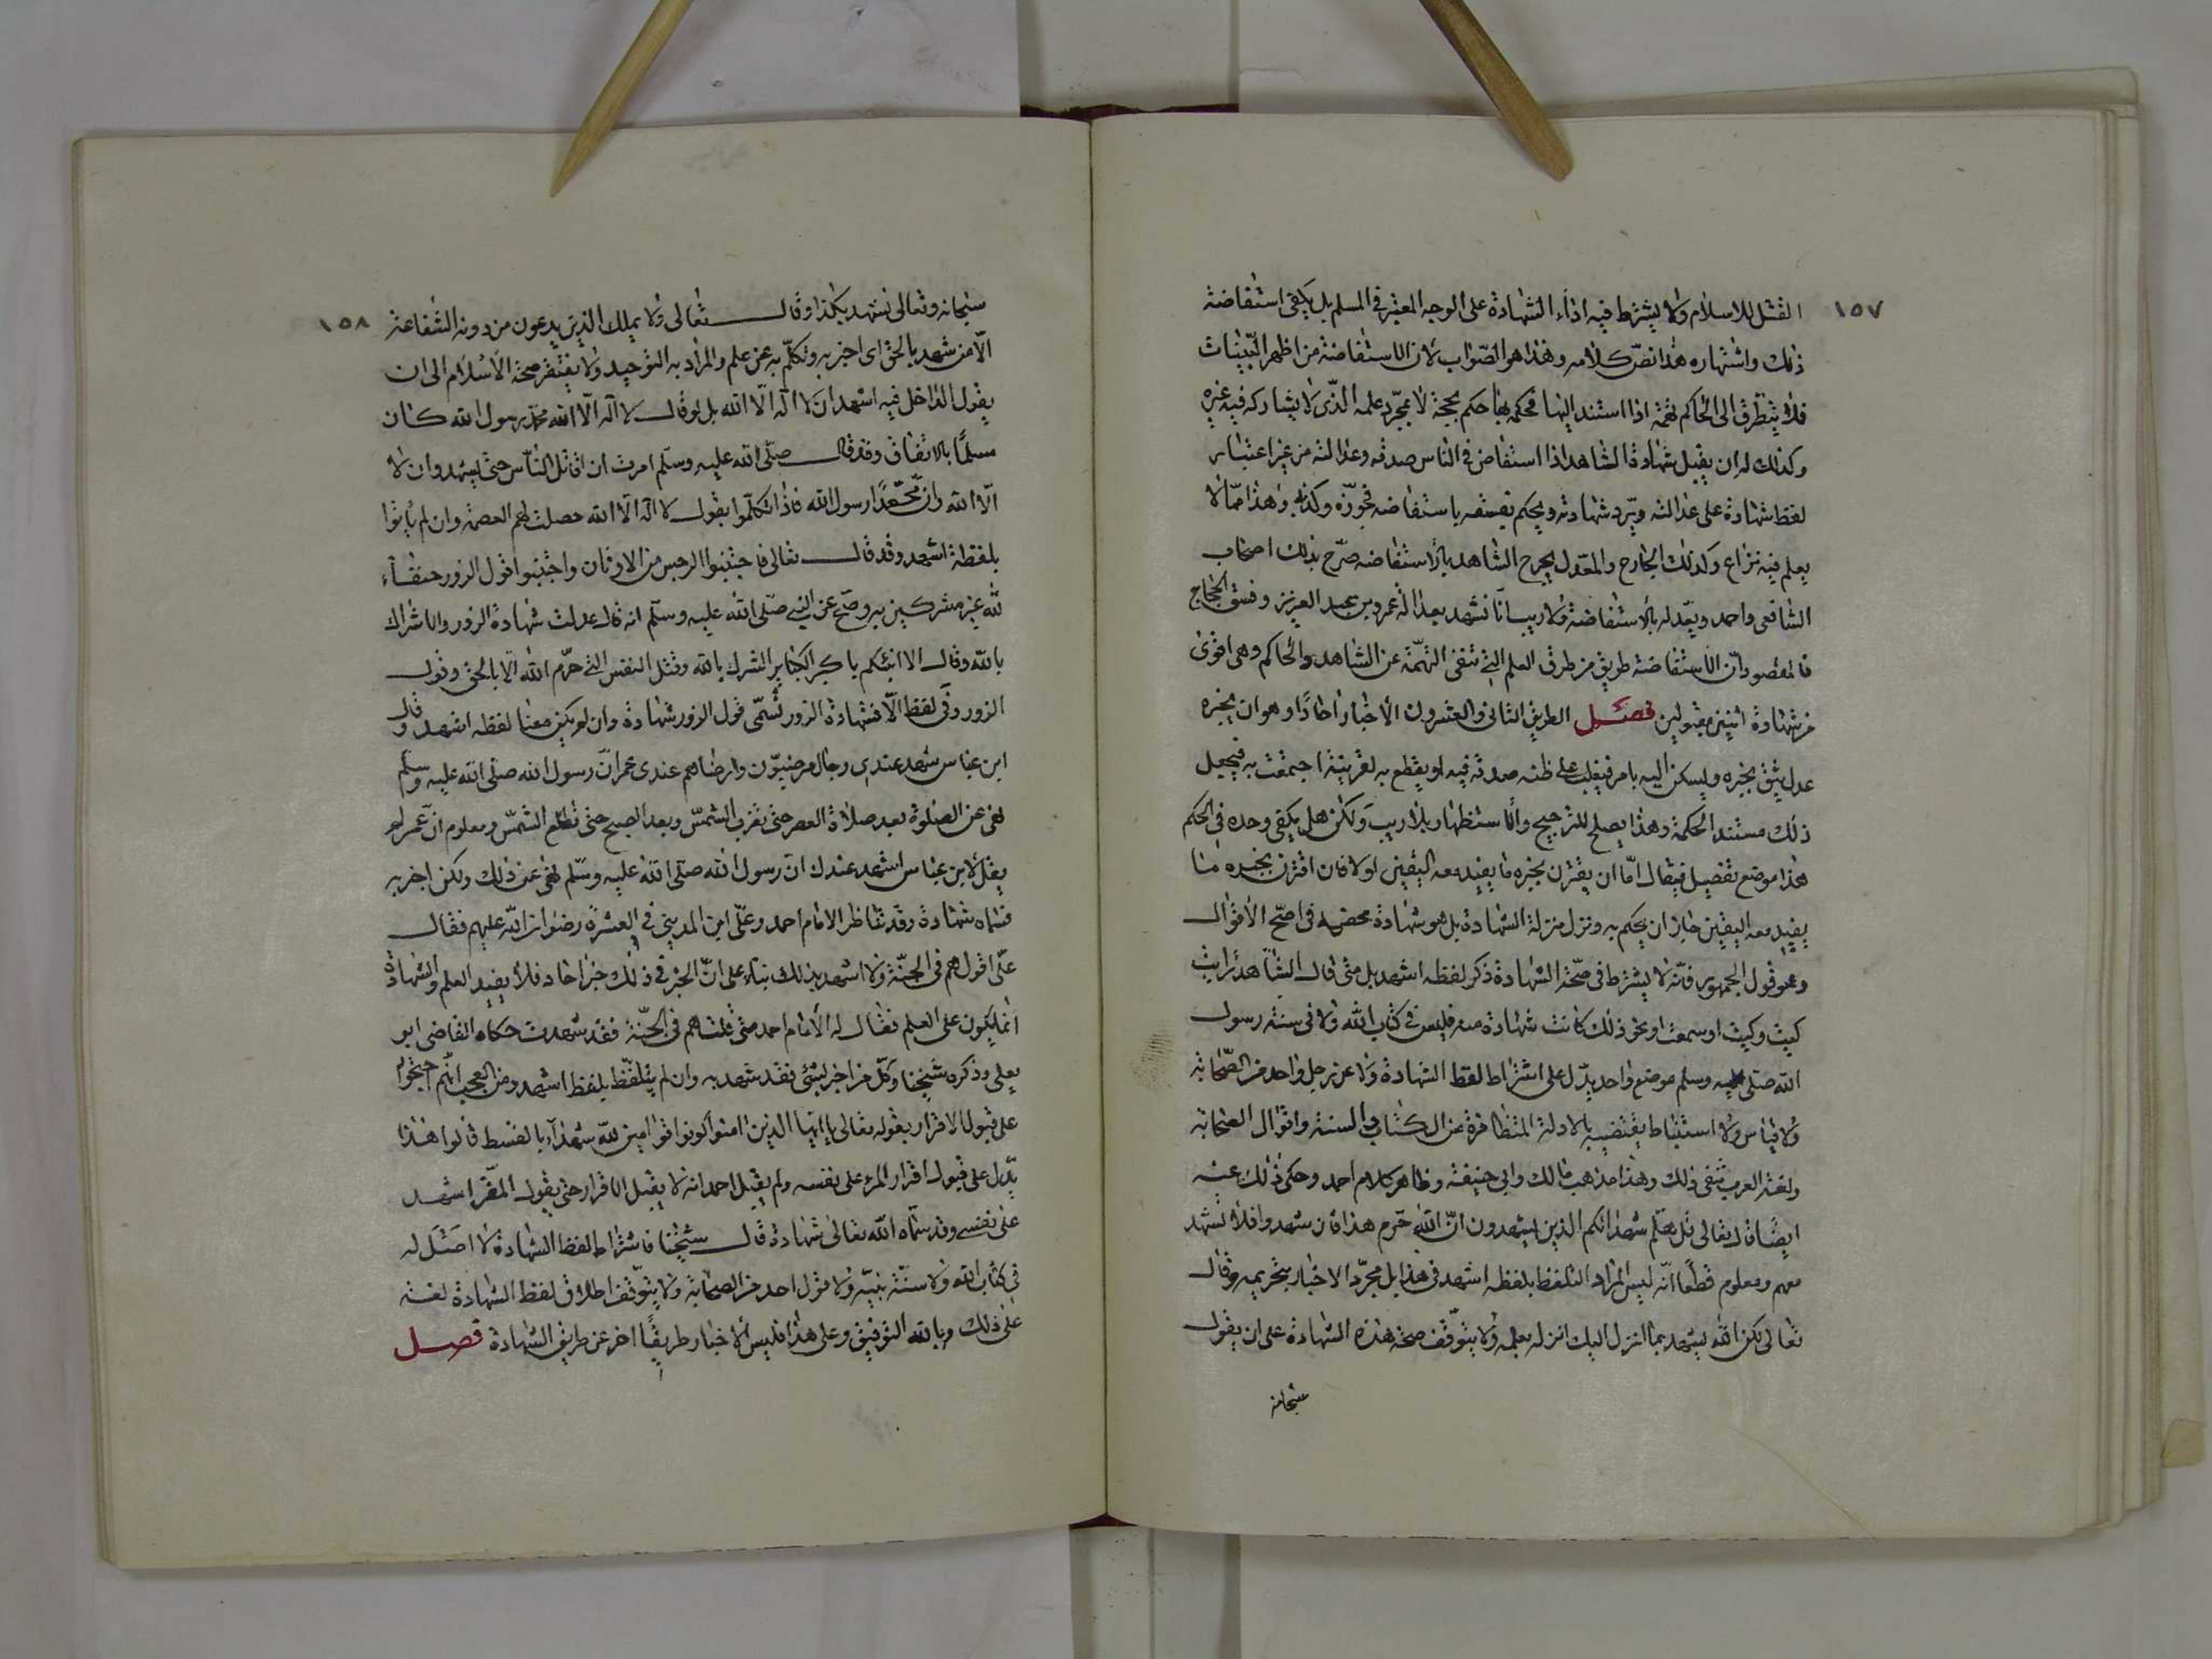 ١٥٧
القتل للاسلام ولا يشترط فيه اداء الشهادة على الوجه المعتبر في المسلم بل يكفى استفاضة
ذلك واشتهاره هذا نصّ كلامه وهذا هو الصّواب لان الاستفاضة من اظهر البيّنات
فلا يتطرق الى الحاكم تهمة اذا استند اليها فحكمه بها حكم بحجة لا بمجرّد علمه الذّى لا يشاركه فيه غيره
وكذلك له ان يقبل شهادة الشاهد اذا استفاض في الناس صدقه وعدالته من غير اعتبار
لفظ شهادة على عدالته ويردّ شهادته ويحكم بفسقه باستفاضه فجوره وكذبه وهذا ممّا لا
يعلم فيه نزاع وكذلك الجارح والمعّدل يجرح الشاهد بالاستفاضه صرّح بذلك اصحاب
الشافعى واحمد ويعّدله بالاستفاضة ولا ريب انّا نشهد بعدالة عمر بن عبد العزيز وفسق الحجاج
فالمقصود انّ الاستفاضة طريق من طرق العلم التي تنفى التهمة عن الشاهد والحاكم وهى اقوى
من شهادة اثنين مقبولين فصل الطريق الثانى والعشرون الاخبار احادًا وهو ان يخبره
عدل يثق بخبره ويسكن اليه بامر فيغلب على ظنه صدقه فيه او يقطع به لقرينة اجتمعت به فيجعل
ذلك مستند الحكمة وهذا يصلح للترجيح والاستظهار بلا ريب ولكن هل يكفى وحده في الحكم
هذا موضع تفصيل فيقال امّا ان يقترن بخبره ما يفيد معه اليقين اولا فان اقترن بخبره ما
يفيد معه اليقين جاز ان يحكم به ونزل منزلة الشهادة بل هو شهادة محضه في اصحّ الاقوال
وهو قول الجمهور فانّه لا يشترط في صحّة الشهادة ذكر لفظه اشهد بل متى قال الشاهد رايت
كيت وكيت او سمعت او نحو ذلك كانت شهادة منه فليس في كتاب الله ولا في سنة رسول
الله صلى عليه وسلم موضع واحد يدّل على اشتراط لفظ الشهادة ولا عن رجل واحد من الصّحابة
ولا قياس ولا استنباط يقتضيه بل الادلة المتظافرة من الكتاب والسنة واقوال الصحابة
ولغة العرب تنفى ذلك وهذا مذهب مالك وابى حنيفة وظاهر كلام احمد وحكى ذلك عنه
ايضًا قال تعالى قل هلم شهداءكم الذين يشهدون انّ الله حرّم هذا فان شهدوا فلا تشهد
معهم ومعلوم قطعًا انّه ليس المراد التلفظ بلفظه اشهد في هذا بل مجرّد الاخبار بتحريمه وقال
تعالى لكن الله يشهد بما انزل اليك انزله بعلمه ولا يتوّقف صحة هذه الشهادة على ان يقول
سبحانه
١٥٨
سبحانه وتعالى نشهد بكذا وقال تعالى ولا يملك الذين يدعون من دونه الشفاعة
الّا من شهد بالحق اى اخبر به وتكلّم به عن علم والمراد به التوحيد ولا يفتقر صحة الاسلام الى ان
يقول الداخل فيه اشهد ان لا اله الّا الله بل لو قال لا اله الّا الله محمّد رسول الله كان
مسلمًا بالاتفاق وقد قال صلّى الله عليه وسلّم امرت ان اقاتل النّاس حتى يشهدوان لا
الّا الله وانّ محمّدًا رسول الله فاذا تكلّموا بقول لا اله الّا الله حصلت لهم العصمة وان لم يأتوا
بلفظة اشهد وقد قال تعالى فاجتنبوا الرجس من الاوثان واجتنبوا قول الزور حنفاء
لله غير مشركين به وصحّ عن النبي صلّى الله عليه وسلّم انه قال عدلت شهادة الزور والاشراك
بالله وقال الا انبئكم باكبر الكبائر الشرك بالله وقتل النفس التي حرّم الله الّا بالحق وقول
الزور وفى لفظ الّا فشهادة الزور تُسمّى قول الزور شهادة وان لم يكن معنا لفظه اشهد وقال
ابن عباس شهد عندى رجال مرضيوّن وارضاهم عندى عمر انّ رسول الله صلّى الله عليه وسلّم
نهى عن الصلوة بعد صلاة العصر حتى تغرب الشمس وبعد الصبح حتى تطلع الشمس ومعلوم انّ عمر لم
يقل لابن عباس اشهد عندك انّ رسول الله صلّى الله عليه وسلّم نهى عن ذلك ولكن اخبر به
فسماه شهادة وقد تناظر الامام احمد وعلّى ابن المدينى في العشرة رضوان الله عليهم فقال
علّى اقول هم في الجنّة ولا اشهد بذلك بناء على انّ الخبر في ذلك خبر احاد فلا يفيد العلم والشهادة
انما يكون على العلم فقال له الامام احمد متى قلت هم في الجنّة فقد شهدت حكاه القاضى ابو
يعلى وذكره شيخنا وكلّ من اخبر بشئى فقد شهد به وان لم يتلفّظ بلفظ اشهد ومن العجب انّهم احتجّوا
على قبول الاقرار بقوله تعالى يا ايّها الذين امنوا كونوا قوّامين لله شهداء بالقسط قالوا هذا
يدّل على قبول اقرار المرء على نفسه ولم يقل احد انه لا يقبل الاقرار حتى يقول المقرّ اشهد
على نفسى وقد سمّاه الله تعالى شهادة قال شيخنا فاشتراط لفظ الشهادة لا اصل له
فى كتاب الله ولا سنّة نبيّه ولا قول احد من الصحابة ولا يتوّقف اطلاق لفظ الشهادة لغة
على ذلك وبالله التوفيق وعلى هذا فليس الاخبار طريقًا اخر عن طريق الشهادة فصل